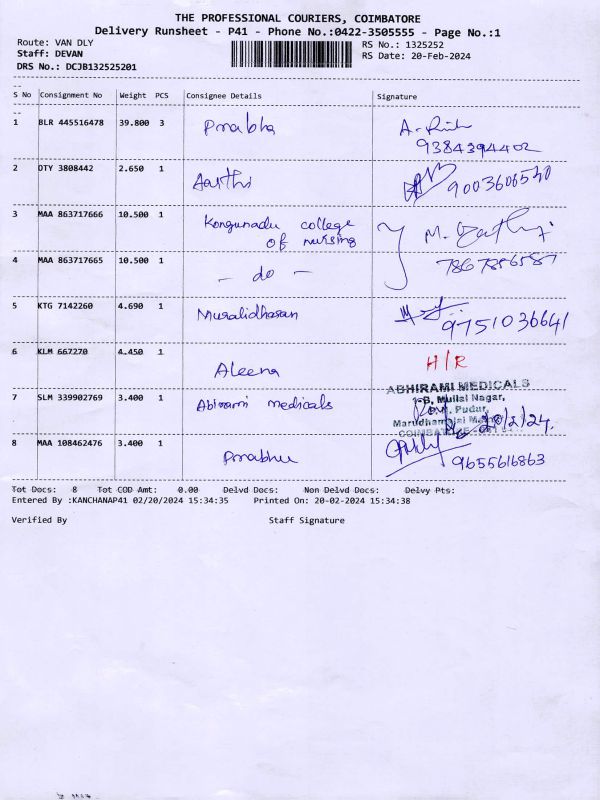 THE PROFESSIONAL COURIERS, COIMBATORE
Delivery Runsheet - P41 - Phone No.:0422-3505555 - Page No.:1
Route: VAN DLY
RS No.: 1325252
Staff: DEVAN
RS Date: 20-Feb-2024
DRS No.: DCJB132525201
S No Consignment No Weight PCS Consignee Details Signature
1 BLR 445516478 39.800 3 Prabha
9384394402
2 OTY 3808442 2.650 1 Aarthi
9003606530
3 MAA 863717666 10.500 1 Kongunadu college
of nursing
4 MAA 863717665 10.500 1 - do -
5 KTG 7142260 4.690 1 Muralidharan
9751036641
6 KLM 667270 4.450 1 Aleena H/R
ABHIRAMI MEDICALS
7 SLM 339902769 3.400 1 Abirami medicals
1-B, Mullai Nagar,
Pudur,
20/2/24.
8 MAA 108462476 3.400 1 Prabhu
9655616863
Tot Docs: 8 Tot COD Amt: 0.00 Delvd Docs: Non Delvd Docs: Delvy Pts:
Entered By :KANCHANAP41 02/20/2024 15:34:35 Printed On: 20-02-2024 15:34:38
Verified By Staff Signature